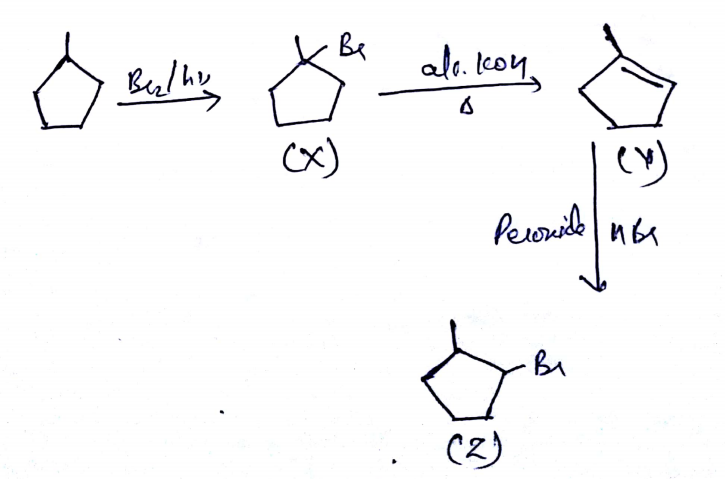 Br
Br₂/hν
alc. KOH
Δ
(X)
(Y)
Peroxide
HBr
Br
(Z)